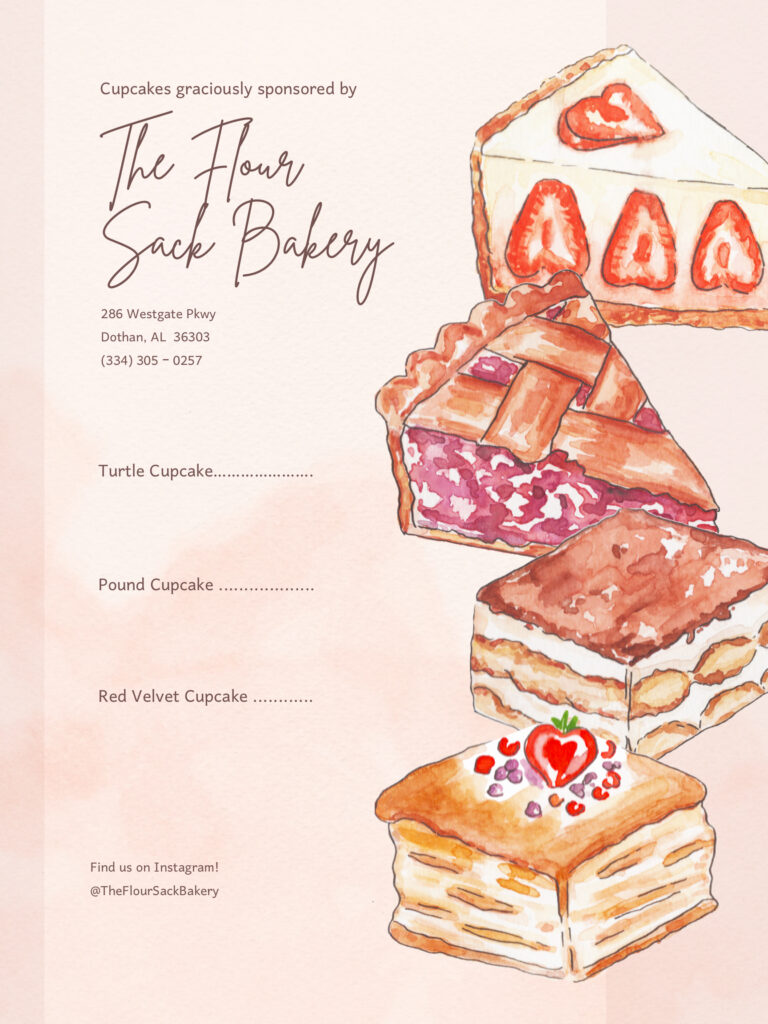 Cupcakes graciously sponsored by
The Flour
Sack Bakery
286 Westgate Pkwy
Dothan, AL  36303
(334) 305 – 0257
Turtle Cupcake......................
Pound Cupcake ...................
Red Velvet Cupcake ............
Find us on Instagram!
@TheFlourSackBakery